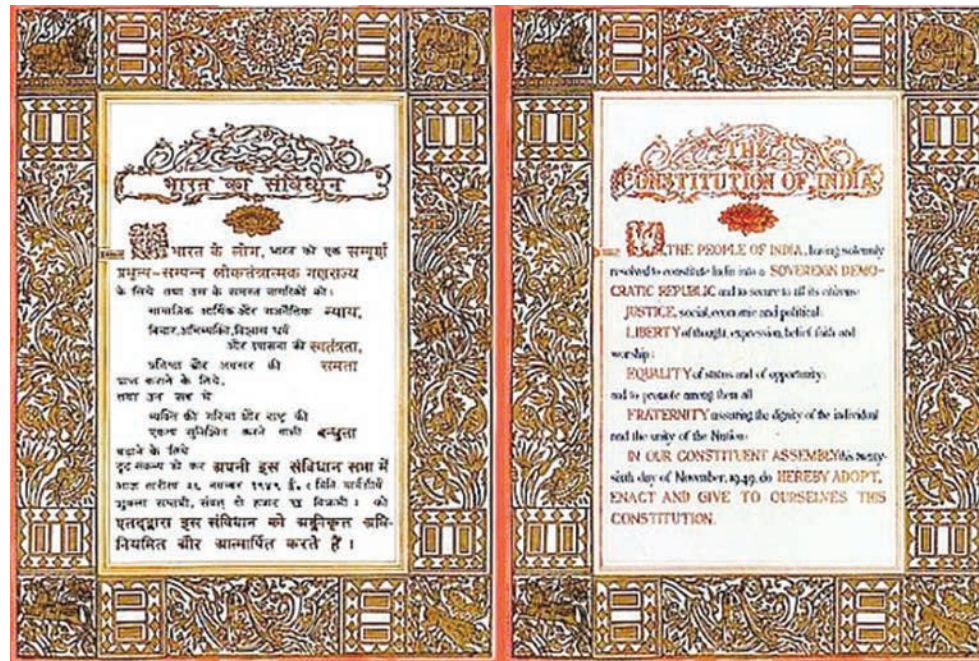 भारत का संविधान
भारत के लोग, भारत को एक सम्पूर्ण
प्रभुत्व-सम्पन्न लोकतंत्रात्मक गणराज्य
के लिये तथा उस के समस्त नागरिकों को:
सामाजिक आर्थिक और राजनैतिक न्याय,
विचार, अभिव्यक्ति, विश्वास धर्म
और उपासना की स्वतंत्रता,
प्रतिष्ठा और अवसर की समता
प्राप्त कराने के लिये,
तथा उन सब में
व्यक्ति की गरिमा और राष्ट्र की
एकता सुनिश्चित करने वाली बन्धुता
बढ़ाने के लिये
दृढ़ संकल्प हो कर अपनी इस संविधान सभा में
आज तारीख २६ नवम्बर १९४९ ई.
शुक्ला सप्तमी, संवत् दो हजार छ विक्रमी) को
एतद्द्वारा इस संविधान को अङ्गीकृत अधि-
नियमित और आत्मार्पित करते हैं।
THE
CONSTITUTION OF INDIA
THE PEOPLE OF INDIA, having solemnly
resolved to constitute India into a SOVEREIGN DEMO-
CRATIC REPUBLIC and to secure to all its citizens:
JUSTICE, social, economic and political;
LIBERTY of thought, expression, belief, faith and
worship;
EQUALITY of status and of opportunity;
and to promote among them all
FRATERNITY assuring the dignity of the individual
and the unity of the Nation;
IN OUR CONSTITUENT ASSEMBLY this twenty-
sixth day of November, 1949, do HEREBY ADOPT,
ENACT AND GIVE TO OURSELVES THIS
CONSTITUTION.